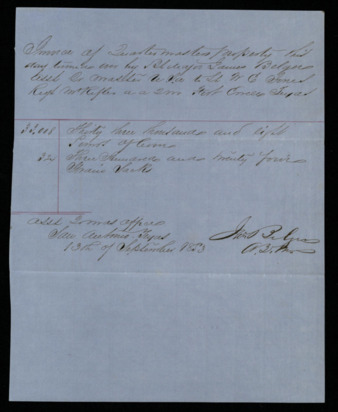 Invoice of Quartermasters property this
day turned over by Bt Major James Belger
Asst Qr Master to Lt W E Jones
Regt Mt Rifles a a q m Fort Texas
32,008 Thirty two thousand and eight
of Corn
324 Three hundred and twenty four
Grain Sacks
Asst Qr Mrs Office
San Antonio Texas
13th of September 1853
Jas Belger
A. Q. M.